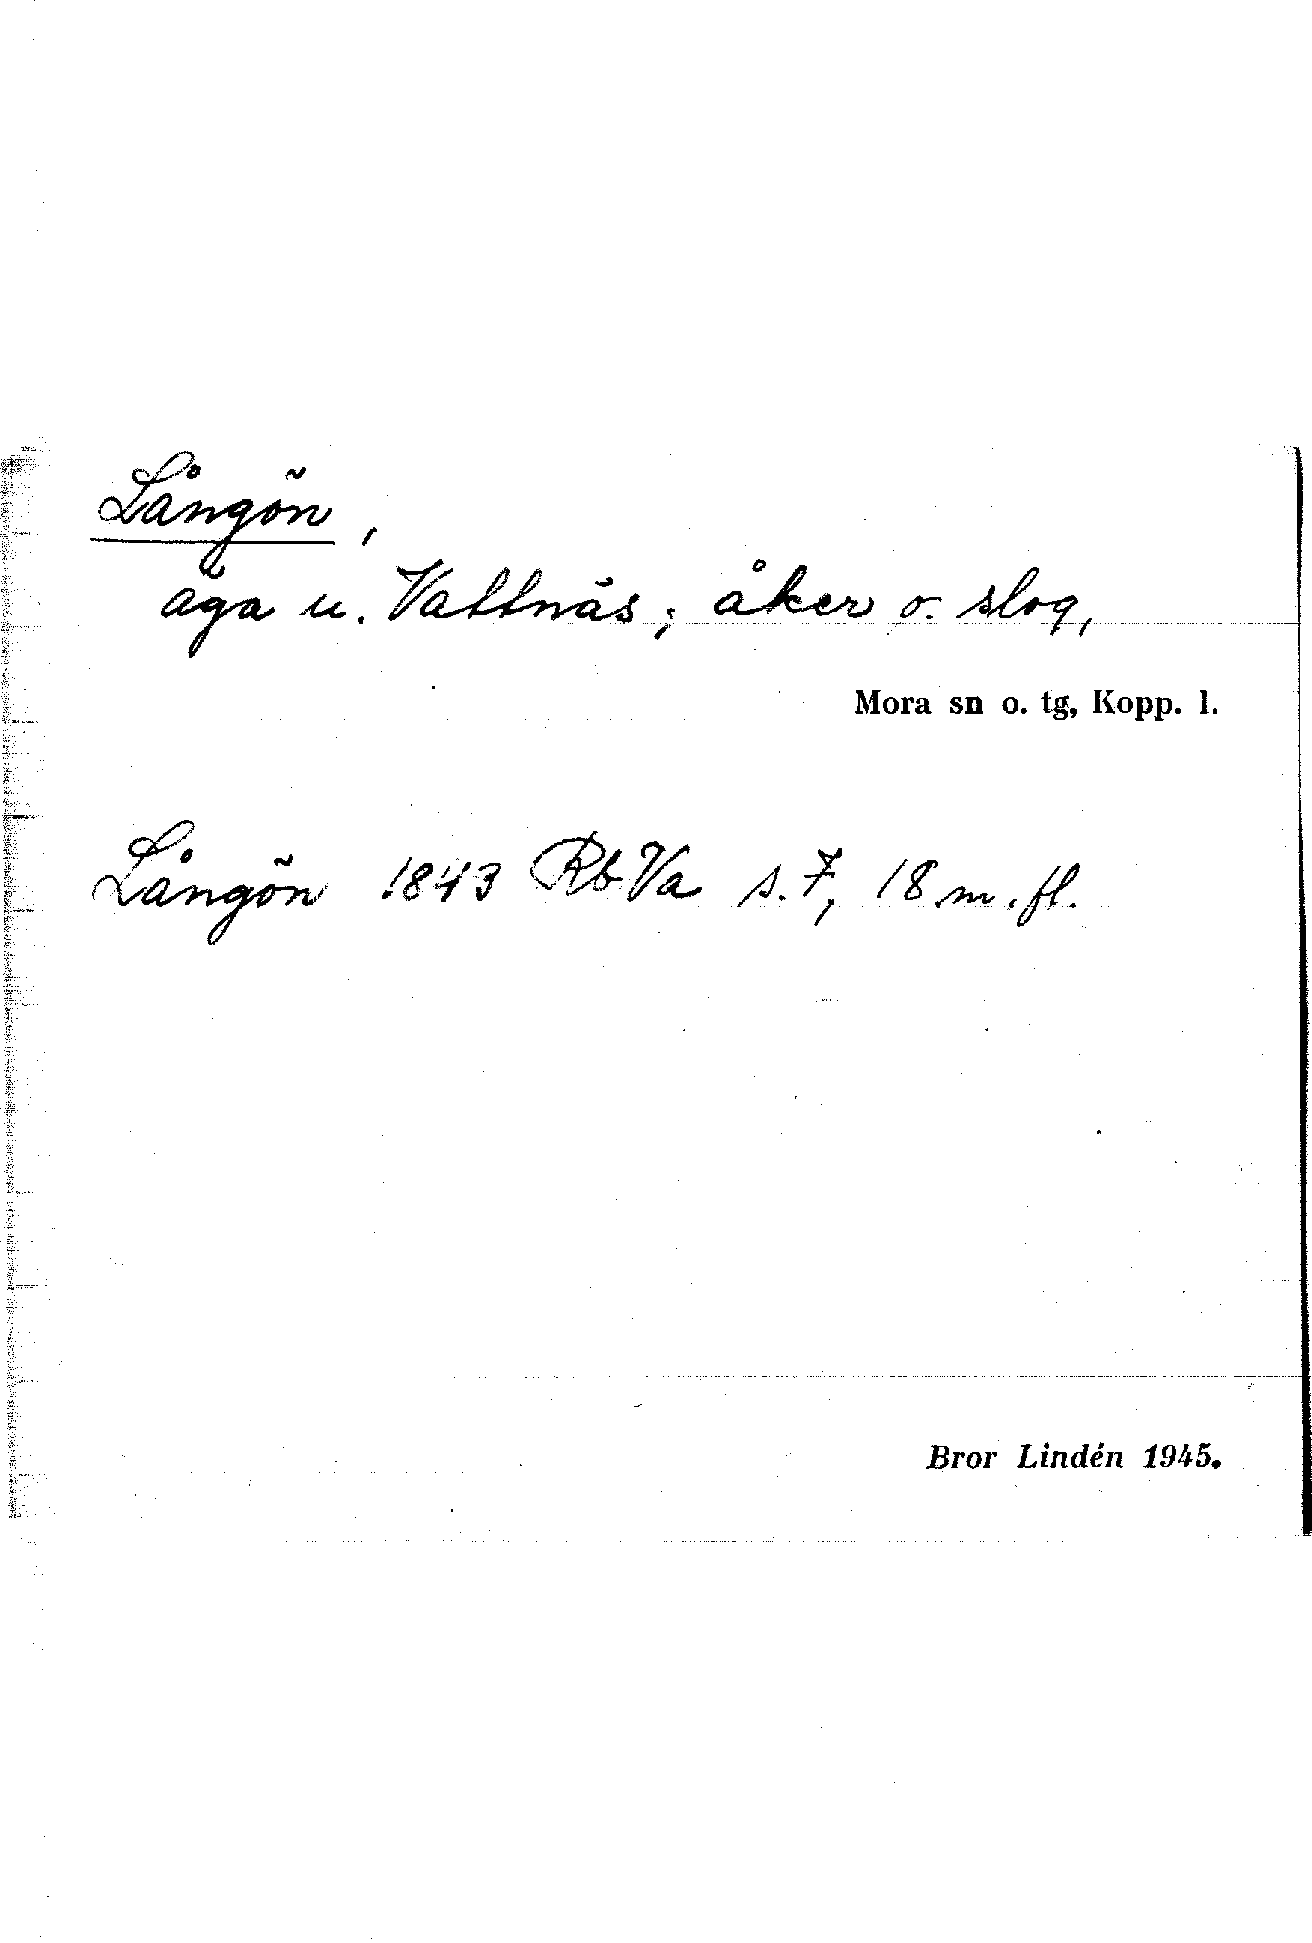 Långön,
äga u. Vattnäs; åker o. slog,
Mora sn o. tg, Kopp. l.
Långön 1843 Rb Va s. 7, 18 m. fl.
Bror Lindén 1945.